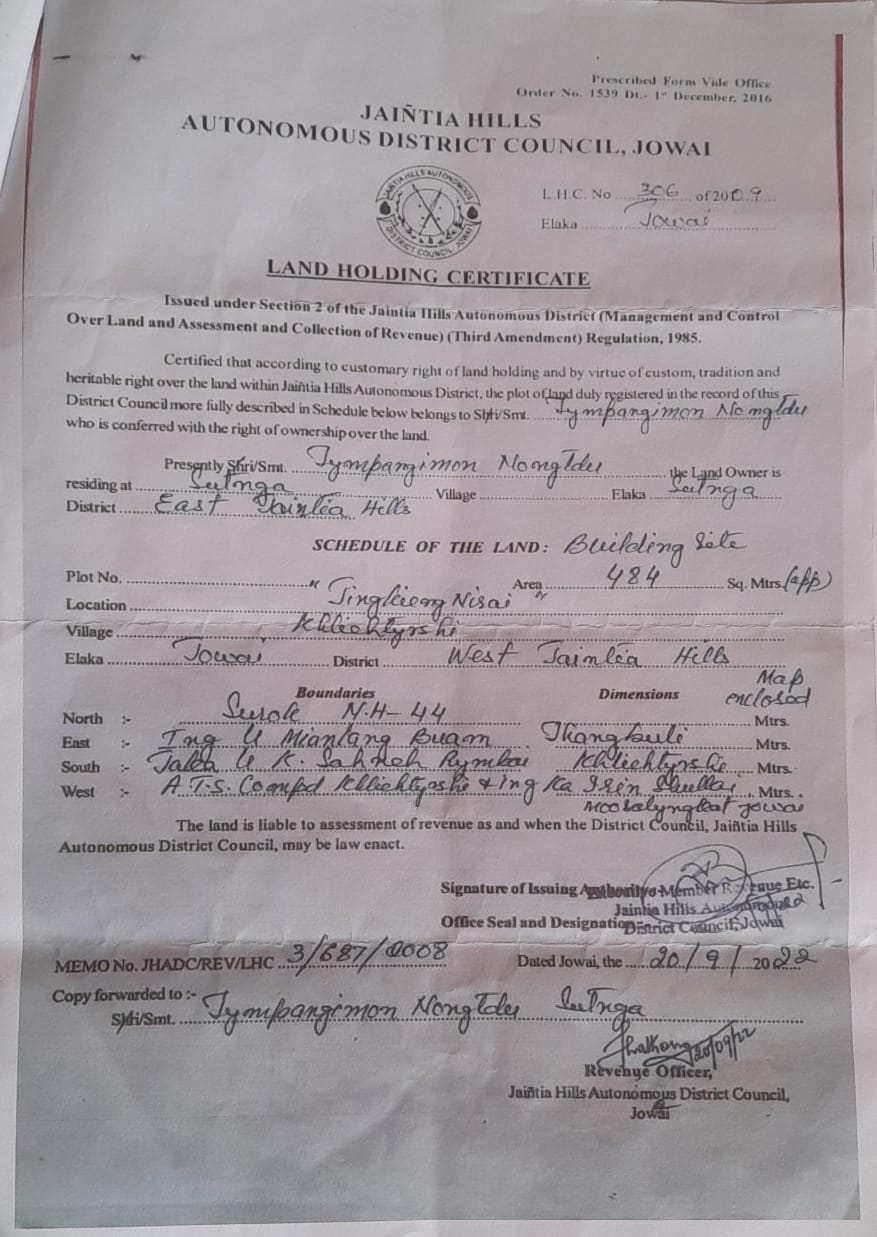 Prescribed Form Vide Office
Order No. 1539 Dt.- 1st December, 2016
JAIÑTIA HILLS
AUTONOMOUS DISTRICT COUNCIL, JOWAI
JAIÑTIA HILLS AUTONOMOUS
DISTRICT COUNCIL JOWAI
L.H.C. No 306 of 2009
Elaka Jowai
LAND HOLDING CERTIFICATE
Issued under Section 2 of the Jaintia Hills Autonomous District (Management and Control
Over Land and Assessment and Collection of Revenue) (Third Amendment) Regulation, 1985.
Certified that according to customary right of land holding and by virtue of custom, tradition and
heritable right over the land within Jaiñtia Hills Autonomous District, the plot of land duly registered in the record of this
District Council more fully described in Schedule below belongs to Shri/Smt. Tympangimon Nongtdu
who is conferred with the right of ownership over the land.
Presently Shri/Smt. Tympangimon Nongtdu the Land Owner is
residing at Sutnga Village Elaka Sutnga
District East Jaintia Hills
SCHEDULE OF THE LAND: Building Site
Plot No. Area 484 Sq. Mtrs. (app)
Location "Jingkieng Nisai"
Village Khliehtyrshi
Elaka Jowai District West Jaintia Hills
Boundaries Dimensions Map enclosed
North :- Surok N.H-44 Mtrs.
East :- Ing U Miantang Buam Thangbuli Mtrs.
South :- U K. Sahneh Rymbai Khliehtyrshi Mtrs.
West :- A.T.S. Compd Khliehtyrshi + ing Ka Isin Shullai Mtrs.
Moosalyngkat Jowai
The land is liable to assessment of revenue as and when the District Council, Jaiñtia Hills
Autonomous District Council, may be law enact.
Signature of Issuing Authority Member Revenue Etc.
Jaintia Hills Autonomous
Office Seal and Designation District Council, Jowai
MEMO No. JHADC/REV/LHC 3/687/2008 Dated Jowai, the 20/9/2022
Copy forwarded to :-
Shri/Smt. Tympangimon Nongtdu Sutnga
20/09/22
Revenue Officer,
Jaiñtia Hills Autonomous District Council,
Jowai